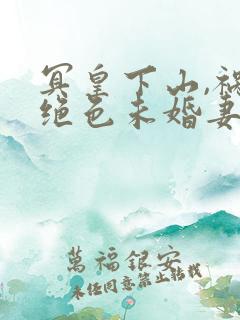 冥皇下山,禍
绝色未婚妻
萬福銀安
未经同意禁止转载